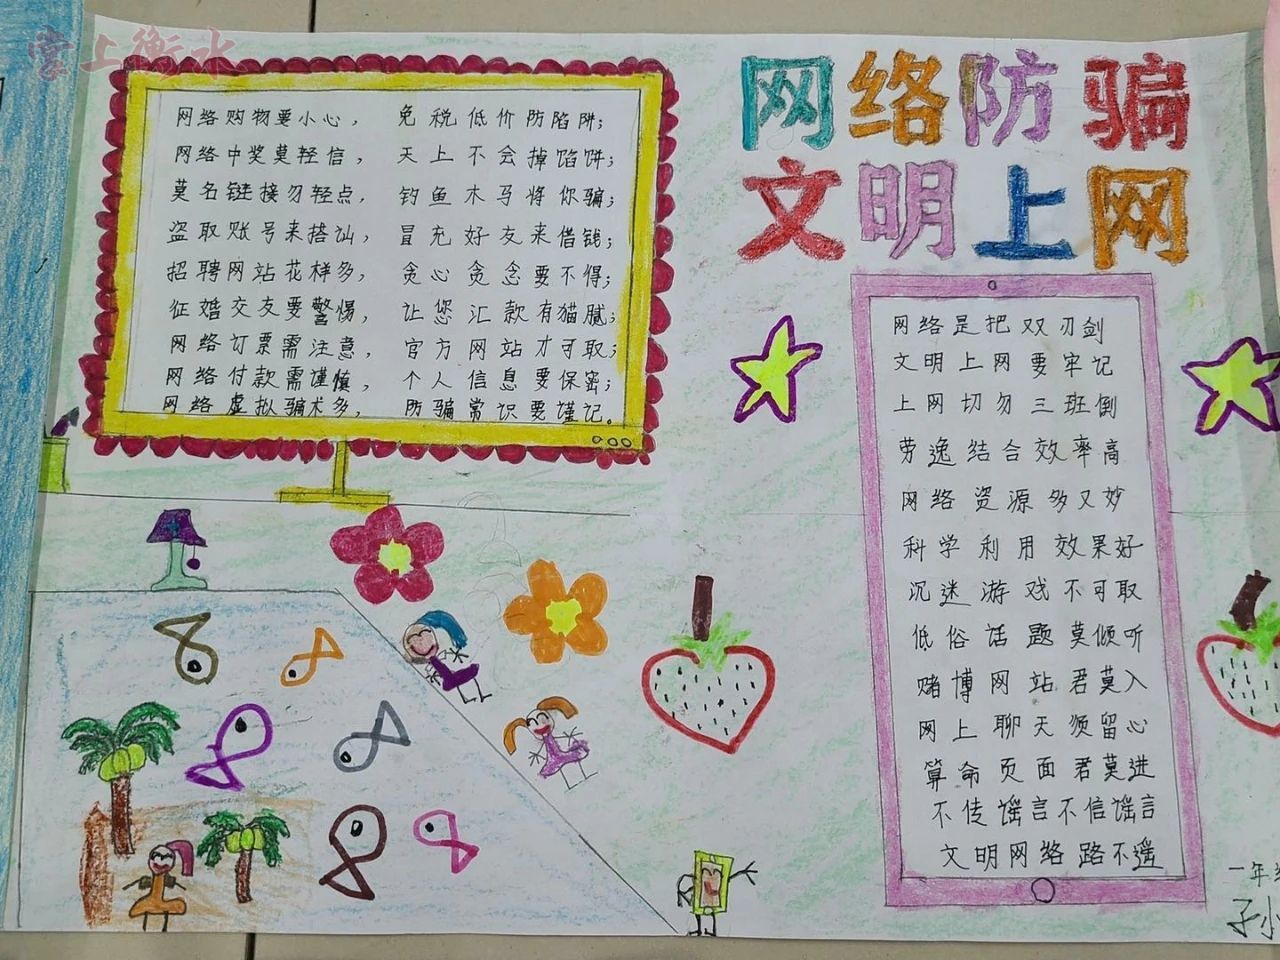 掌上衡水
网络防骗
文明上网
网络购物要小心，免税低价防陷阱；
网络中奖莫轻信，天上不会掉馅饼；
莫名链接勿轻点，钓鱼木马将你骗；
盗取账号来搭讪，冒充好友来借钱；
招聘网站花样多，贪心贪念要不得；
征婚交友要警惕，让您汇款有猫腻；
网络订票需注意，官方网站才可取；
网络付款需谨慎，个人信息要保密；
网络虚拟骗术多，防骗常识要谨记。
网络是把双刃剑
文明上网要牢记
上网切勿三班倒
劳逸结合效率高
网络资源多又妙
科学利用效果好
沉迷游戏不可取
低俗话题莫倾听
赌博网站君莫入
网上聊天须留心
算命页面君莫进
不传谣言不信谣言
文明网络路不遥
一年
子小